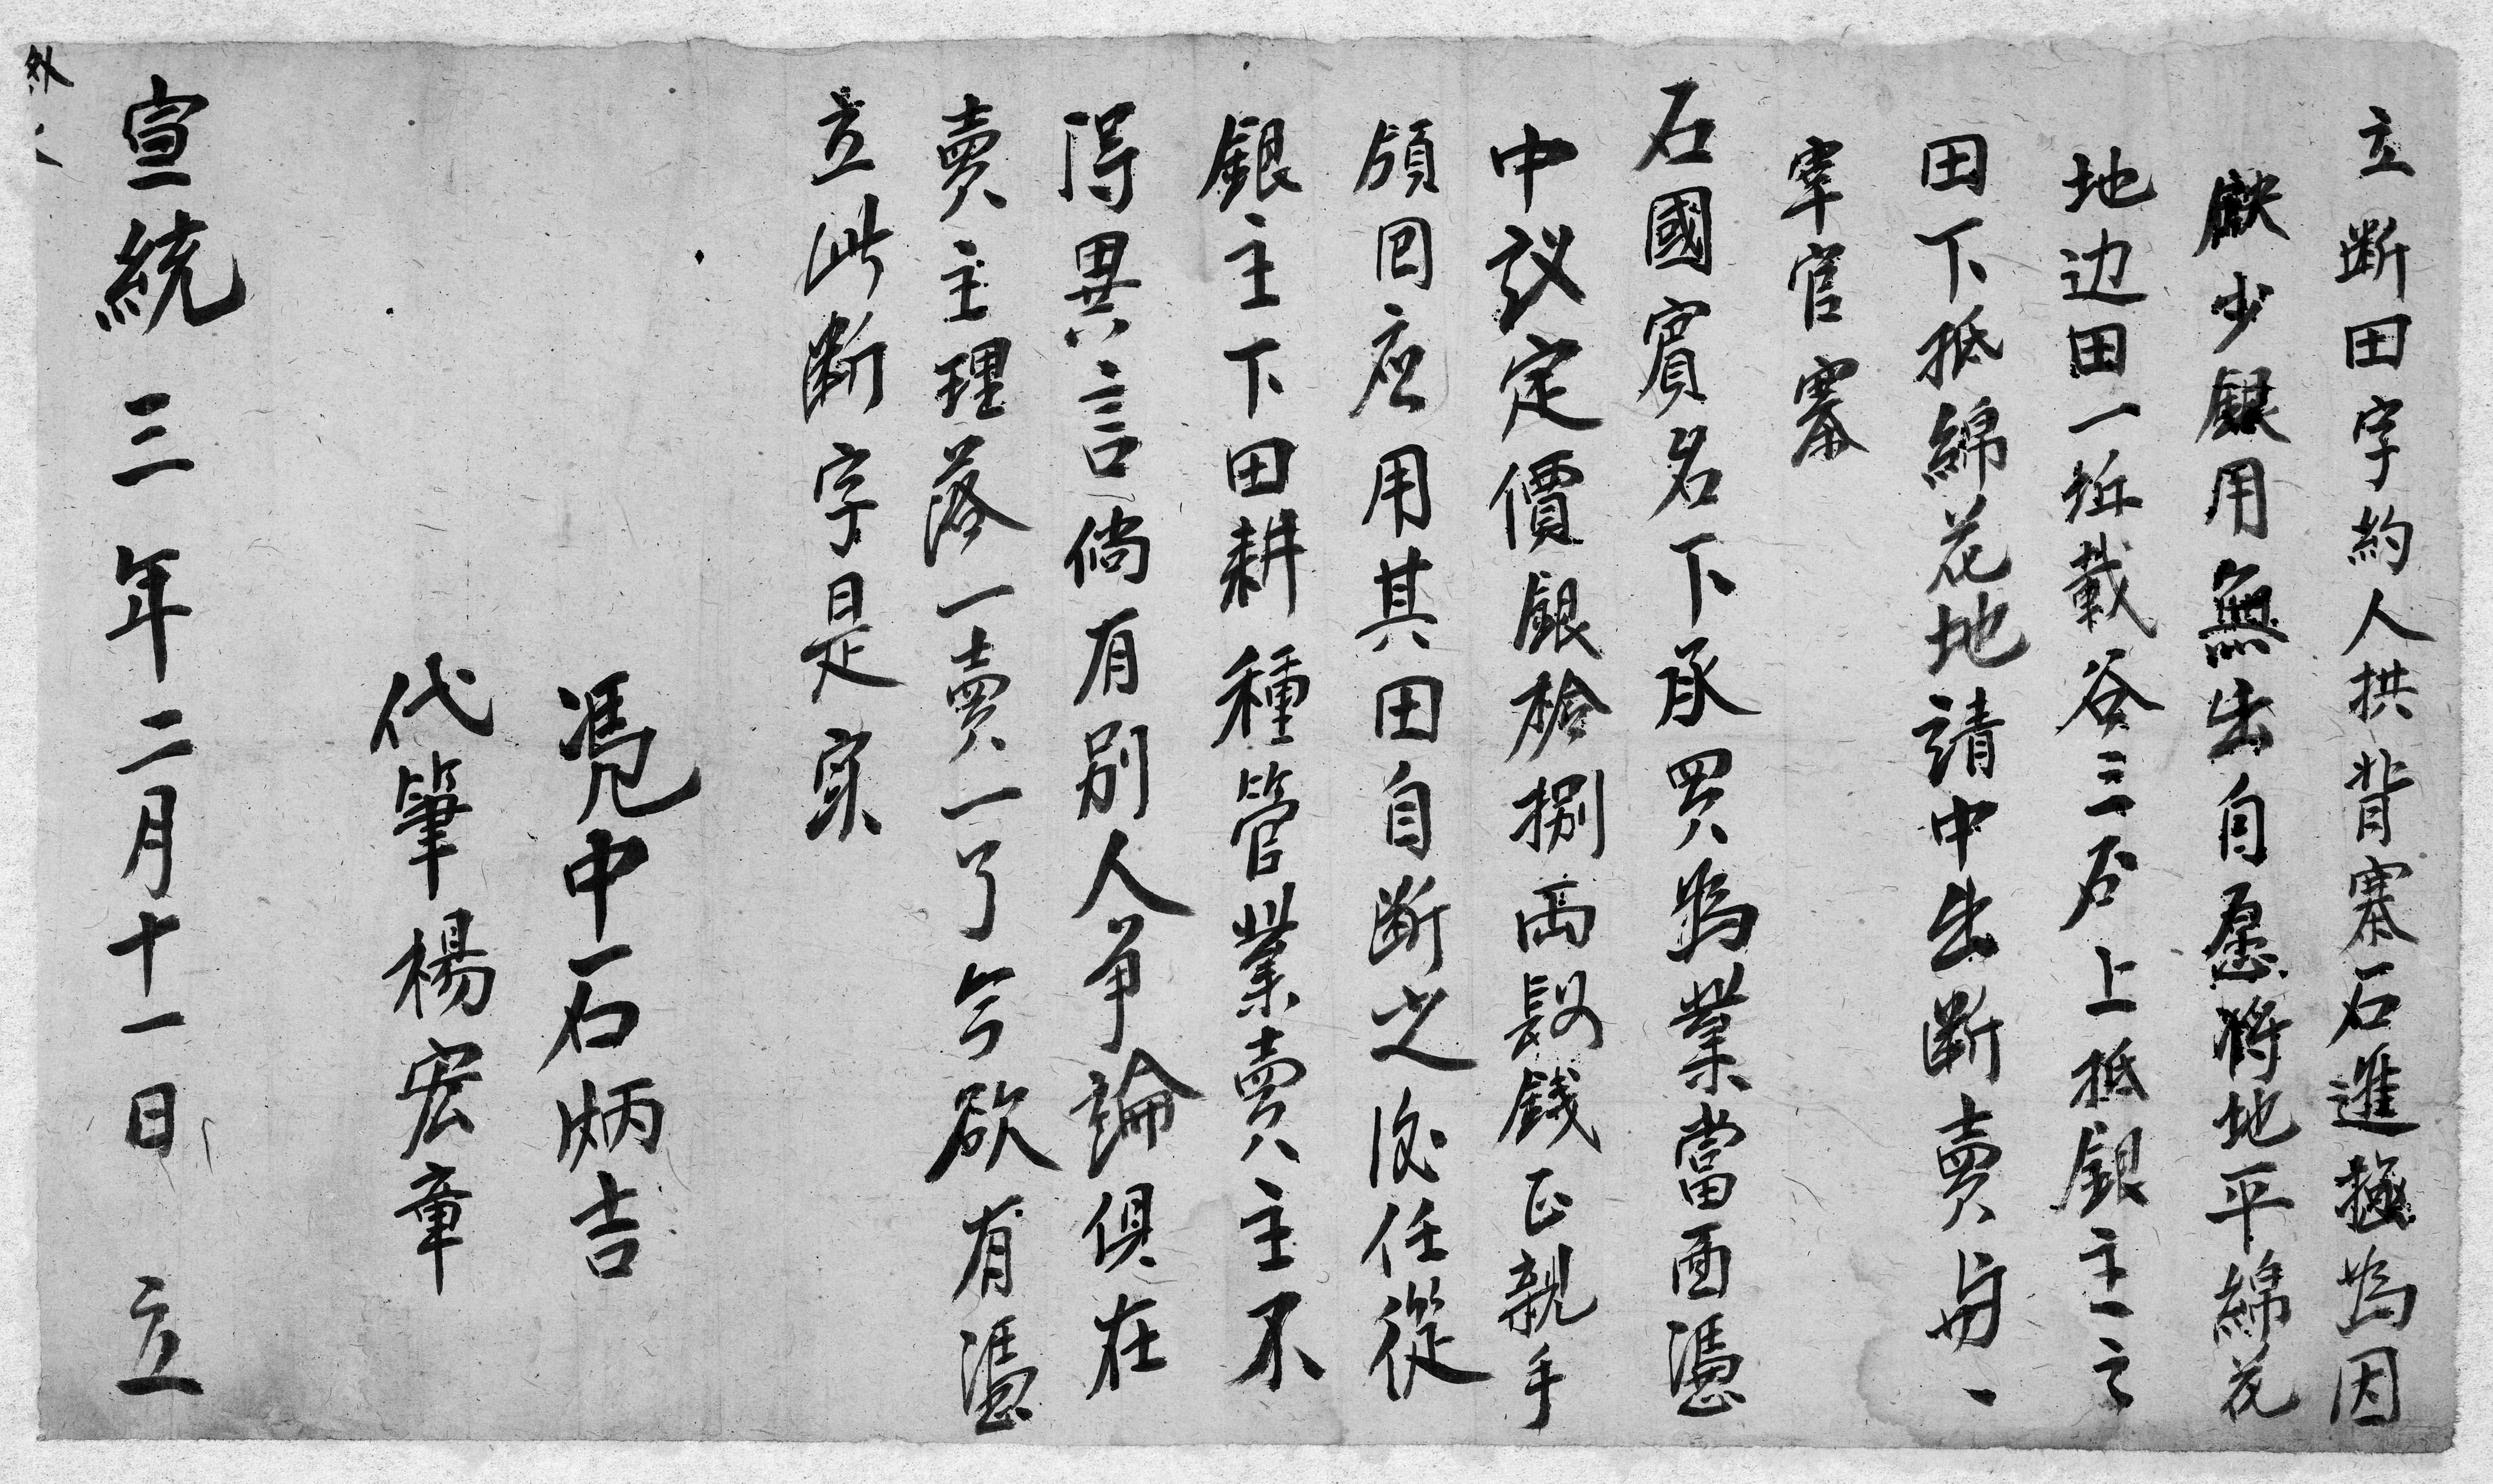 立断田字約人拱背寨石進極為因
缺少銀用無出自愿將地平綿花
地边田一坵載谷三石上抵銀主之
田下抵綿花地請中出断賣与
宰官寨
石國賓名下承買為業當面憑
中議定價銀拾捌両叚錢正親手
領囘应用其田自断之後任從
銀主下田耕種管業賣主不
得異言倘有别人争論俱在
賣主理落一賣一了今欲有憑
立此断字是实
馮中石炳吉
代筆楊宏章
宣統三年二月十一日立